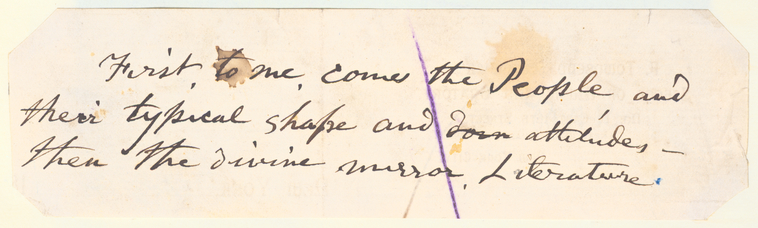 First, to me, comes the People, and
their typical shape and attitudes —
then the divine mirror, Literature.